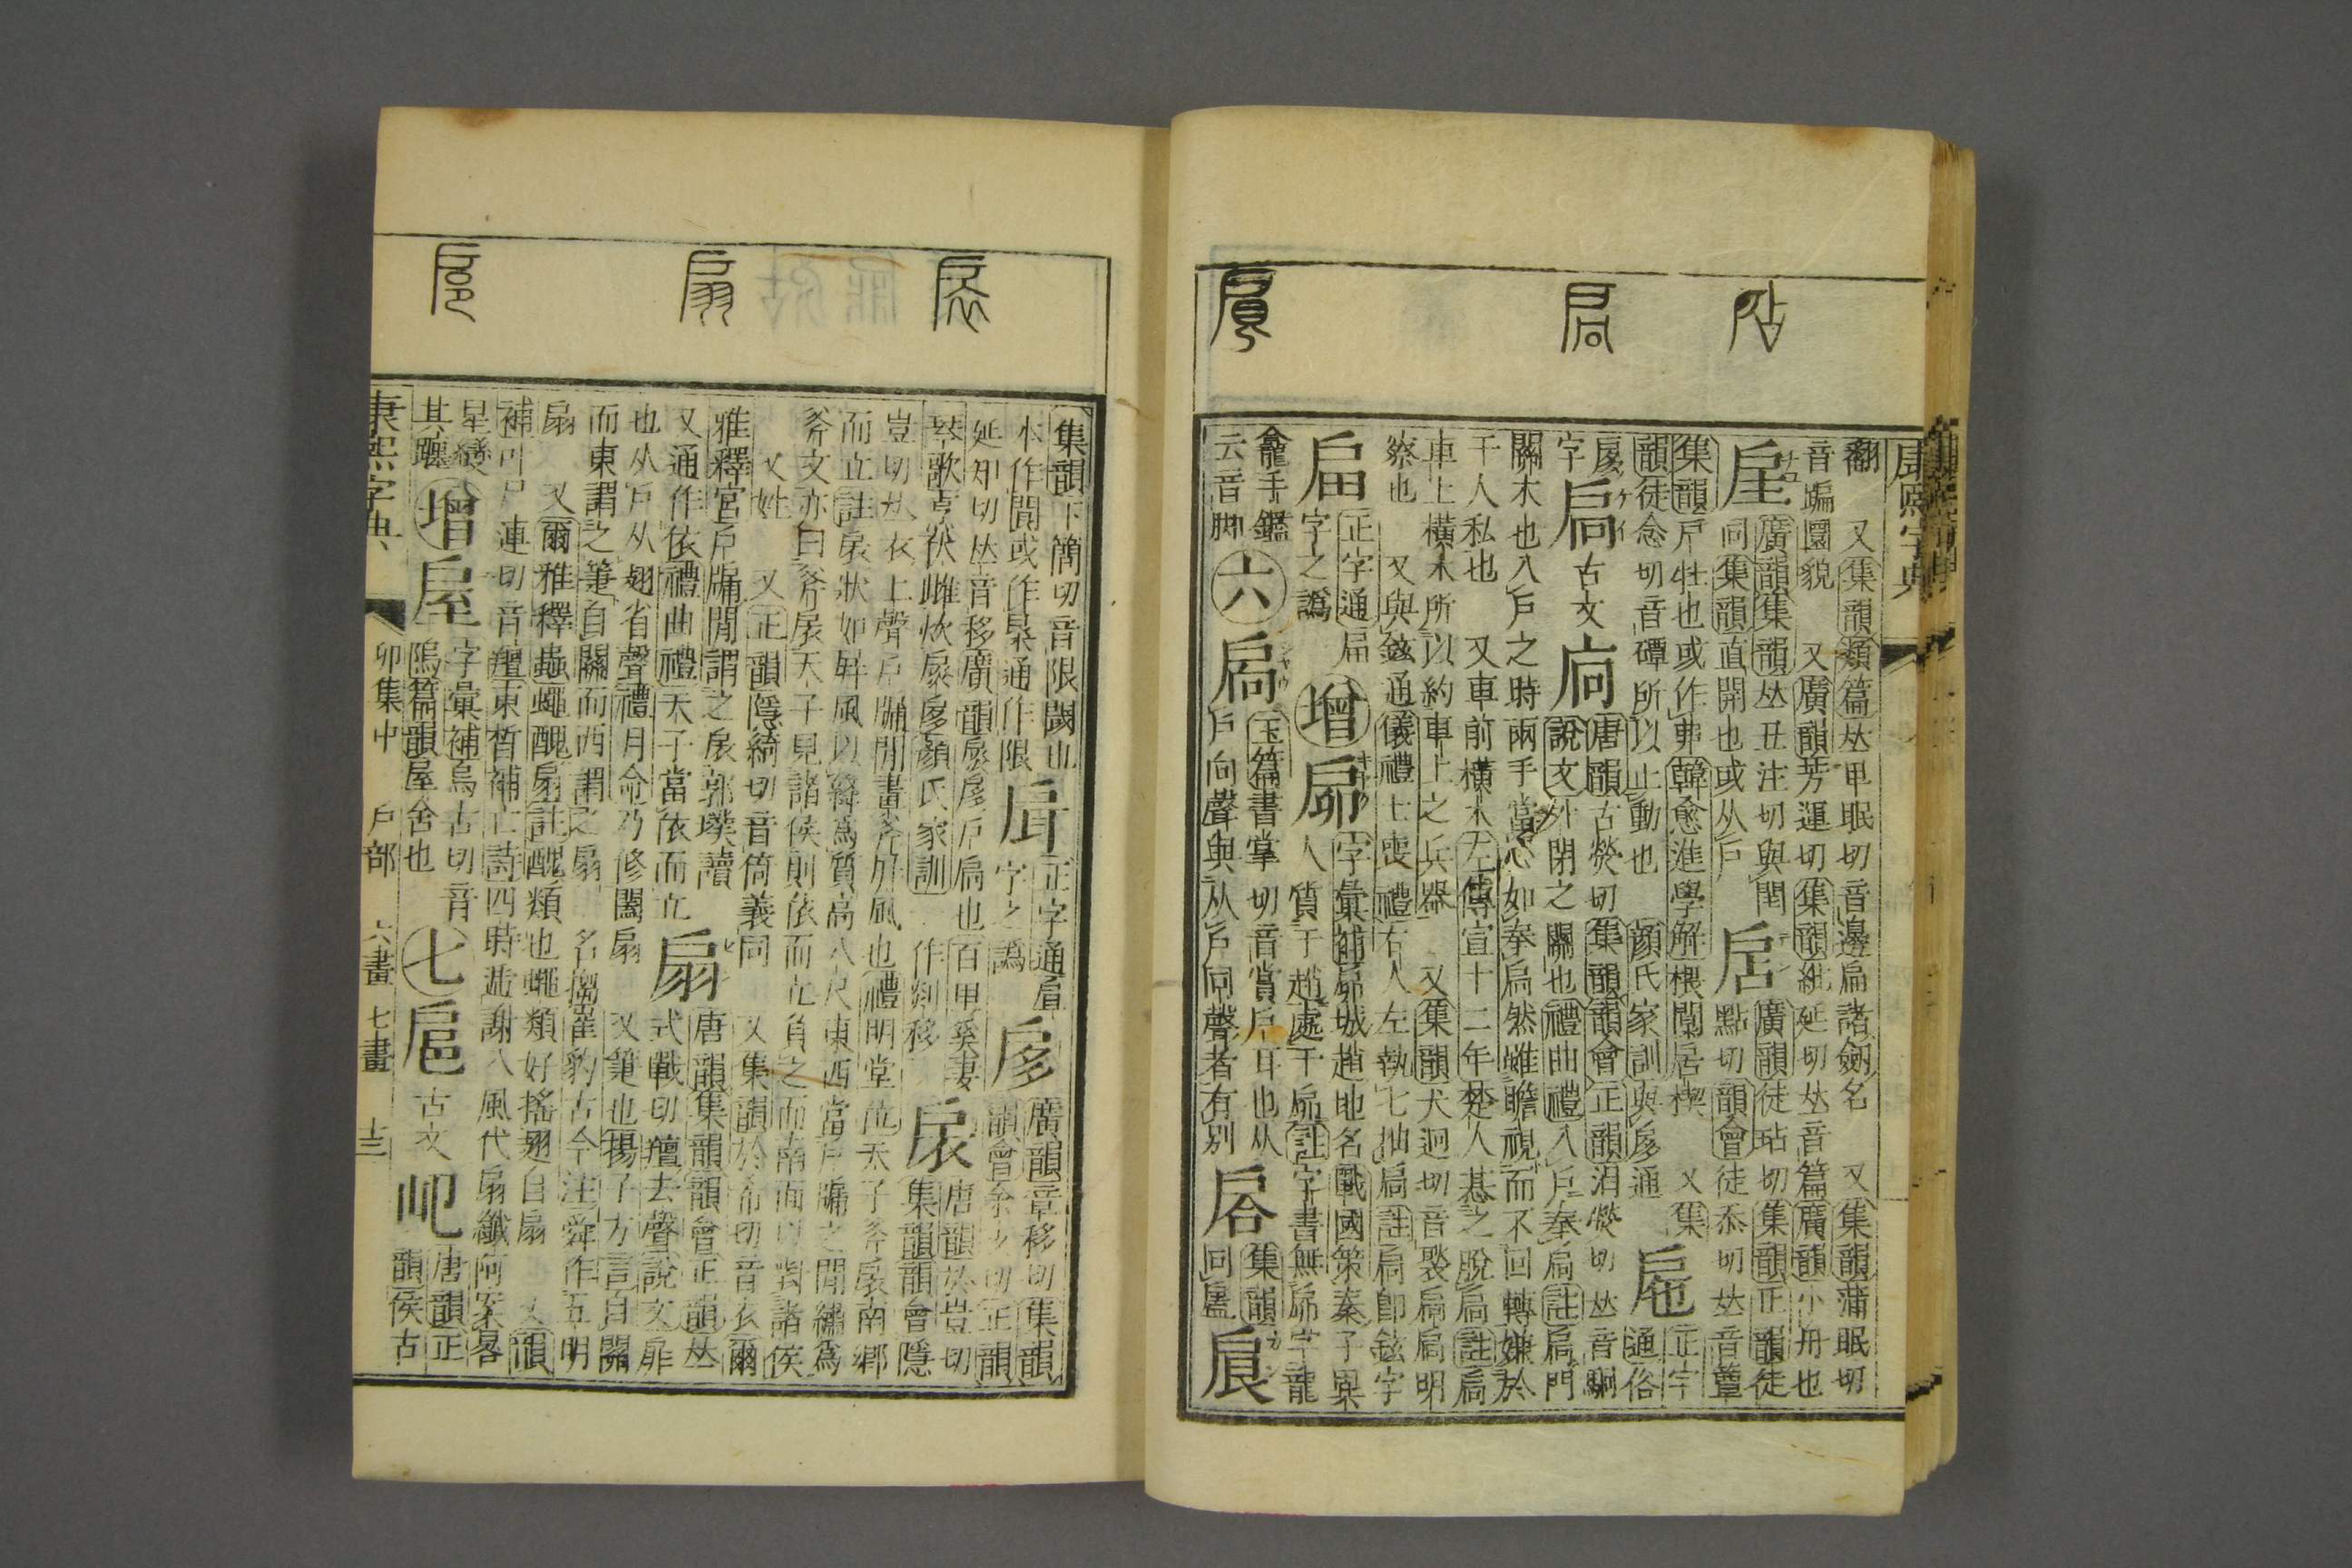 康熙字典
翻 又集韻類篇𠀤甲眠切音邊扁諸劒名 又集韻蒲眠切
音蹁圜貌 又廣韻芳連切集韻紕延切𠀤音篇廣韻小舟也
廣韻集韻𠀤丑注切與閏
同集韻直開也或从戶
扂 廣韻徒玷切集韻正韻徒
點切韻會徒忝切𠀤音簟
集韻戶牡也或作𢎨韓愈進學解椳闑扂楔 又集
韻徒念切音磹所以止動也 顏氏家訓與扊通
正字
通俗
扊字
扃 古文 𢈗 唐韻古熒切集韻韻會正韻涓熒切𠀤音駉
說文外閉之關也禮曲禮入戶奉扃註扃門
關木也入戶之時兩手當心如奉扃然雖瞻視而不回轉嫌於
干人私也 又車前橫木左傳宣十二年楚人惎之脫扃註扃
車上橫木所以約車上之兵器 又集韻犬迥切音褧扃扃明
察也 又與鉉通儀禮士喪禮右人左執匕抽扃註扃卽鉉字
正字通扁
字之譌
增 戼 字彙補戼城趙地名戰國策秦子異
人質于趙處于戼註字書無戼字龍
龕手鑑
云音脚
六 扄 玉篇書掌切音賞戶耳也从
戶向聲與从戶冋聲者有別
㕉 集韻
同㿯
㫳
集韻下簡切音限閾也
本作閬或作㫳通作限
𢨋 正字通眉
字之譌
扅 廣韻章移切集韻
韻會余支切正韻
延知切𠀤音移廣韻扊扅戶扃也百里奚妻
琴歌烹伏雌炊扊扅顏氏家訓一作剡移
扆 唐韻於豈切
集韻韻會隱
豈切𠀤衣上聲戶牖閒畫斧𡰥風也禮明堂位天子斧扆南鄕
而立註扆狀如屛風以絳爲質高八尺東西當戶牖之閒繡爲
斧文亦曰斧扆天子見諸侯則依而立負之而南面以對諸侯
又姓 又正韻隱綺切音倚義同 又集韻於希切音衣爾
雅釋宮戶牖閒謂之扆郭璞讀
又通作依禮曲禮天子當依而立
扇 唐韻集韻韻會正韻𠀤
式戰切羶去聲說文扉
也从戶从翅省聲禮月令乃修闔扇 又箑也揚子方言自關
而東謂之箑自關而西謂之扇 名㩗崔豹古今注舜作五明
扇 又爾雅釋蟲蠅醜扇註醜類也蠅類好搖翅自扇 又韻
補叶尸連切音羶束皙補亡詩四時遞謝八風代扇纖阿案晷
星變
其躔
增 𢩈 字彙補烏古切音
隖篇韻屋舍也
七 扈 古文 𡵆 唐韻正
韻侯古
康熙字典 卯集中 戶部 六畫 七畫 十三